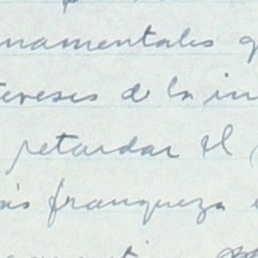 namentales
tereses de la in
retardar el
ás franqueza